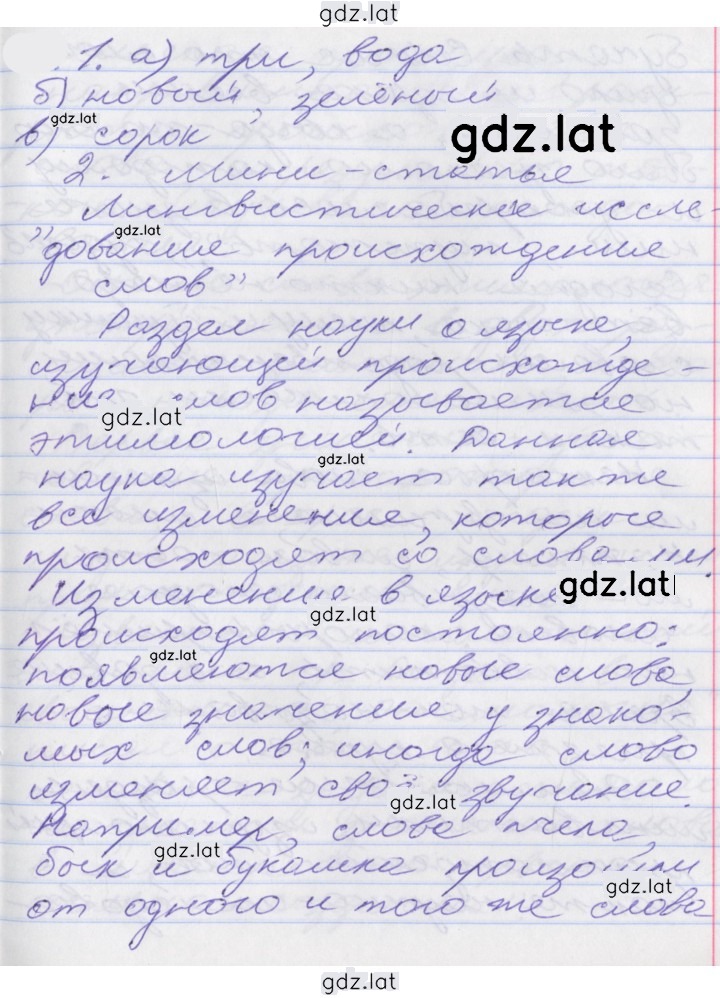 gdz.lat
1. а) три, вода
б) новый, зелёный
gdz.lat
в) сорок
gdz.lat
2. Мини-статья
Лингвистическое иссле-
gdz.lat
"дование происхождение
слов"
Раздел науки о языке,
изучающей происхожде-
ни слов называется
gdz.lat
этимологией. Данная
gdz.lat
наука изучает также
все изменение, которые
происходят со словами.
Изменения в языке
gdz.lat
gdz.lat
происходят постоянно:
gdz.lat
появляются новые слова,
новые значение у знако-
мых слов; иногда слово
изменяет сво звучание.
gdz.lat
Например, слова пчела,
gdz.lat
бык и букашка произошли
gdz.lat
от одного и того же слова
gdz.lat